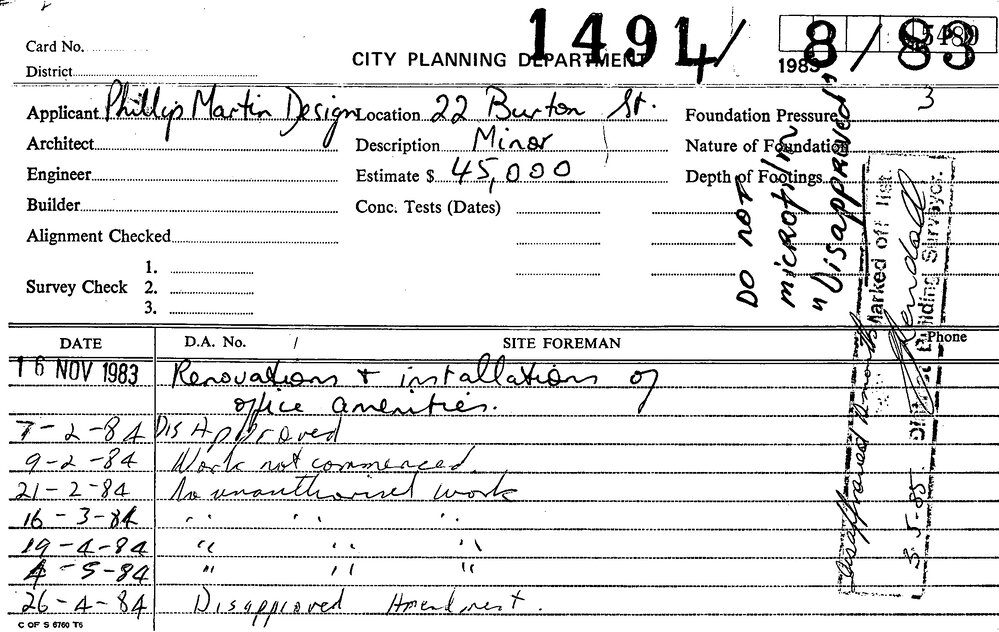 1491/8/83
5489
Card No.
CITY PLANNING DEPARTMENT
1983
District
3
Applicant Phillip Martin Design
Location 22 Burton St.
Foundation Pressure
Architect
Description Minor
Nature of Foundation
Engineer
Estimate $ 45,000
Depth of Footings
Builder
Conc. Tests (Dates)
Alignment Checked
1.
Survey Check 2.
3.
DO NOT
microfilm
"Disapproved"
Marked off list.
Building Surveyor.
3.5-85
DATE D.A. No. SITE FOREMAN Phone
16 NOV 1983 Renovations + installations of
office amenities.
7-2-84 Disapproved
9-2-84 Work not commenced.
21-2-84 No unauthorised work
16-3-84 " " "
19-4-84 " " "
4-5-84 " " "
26-4-84 Disapproved Amendment.
C OF S 6760 T6